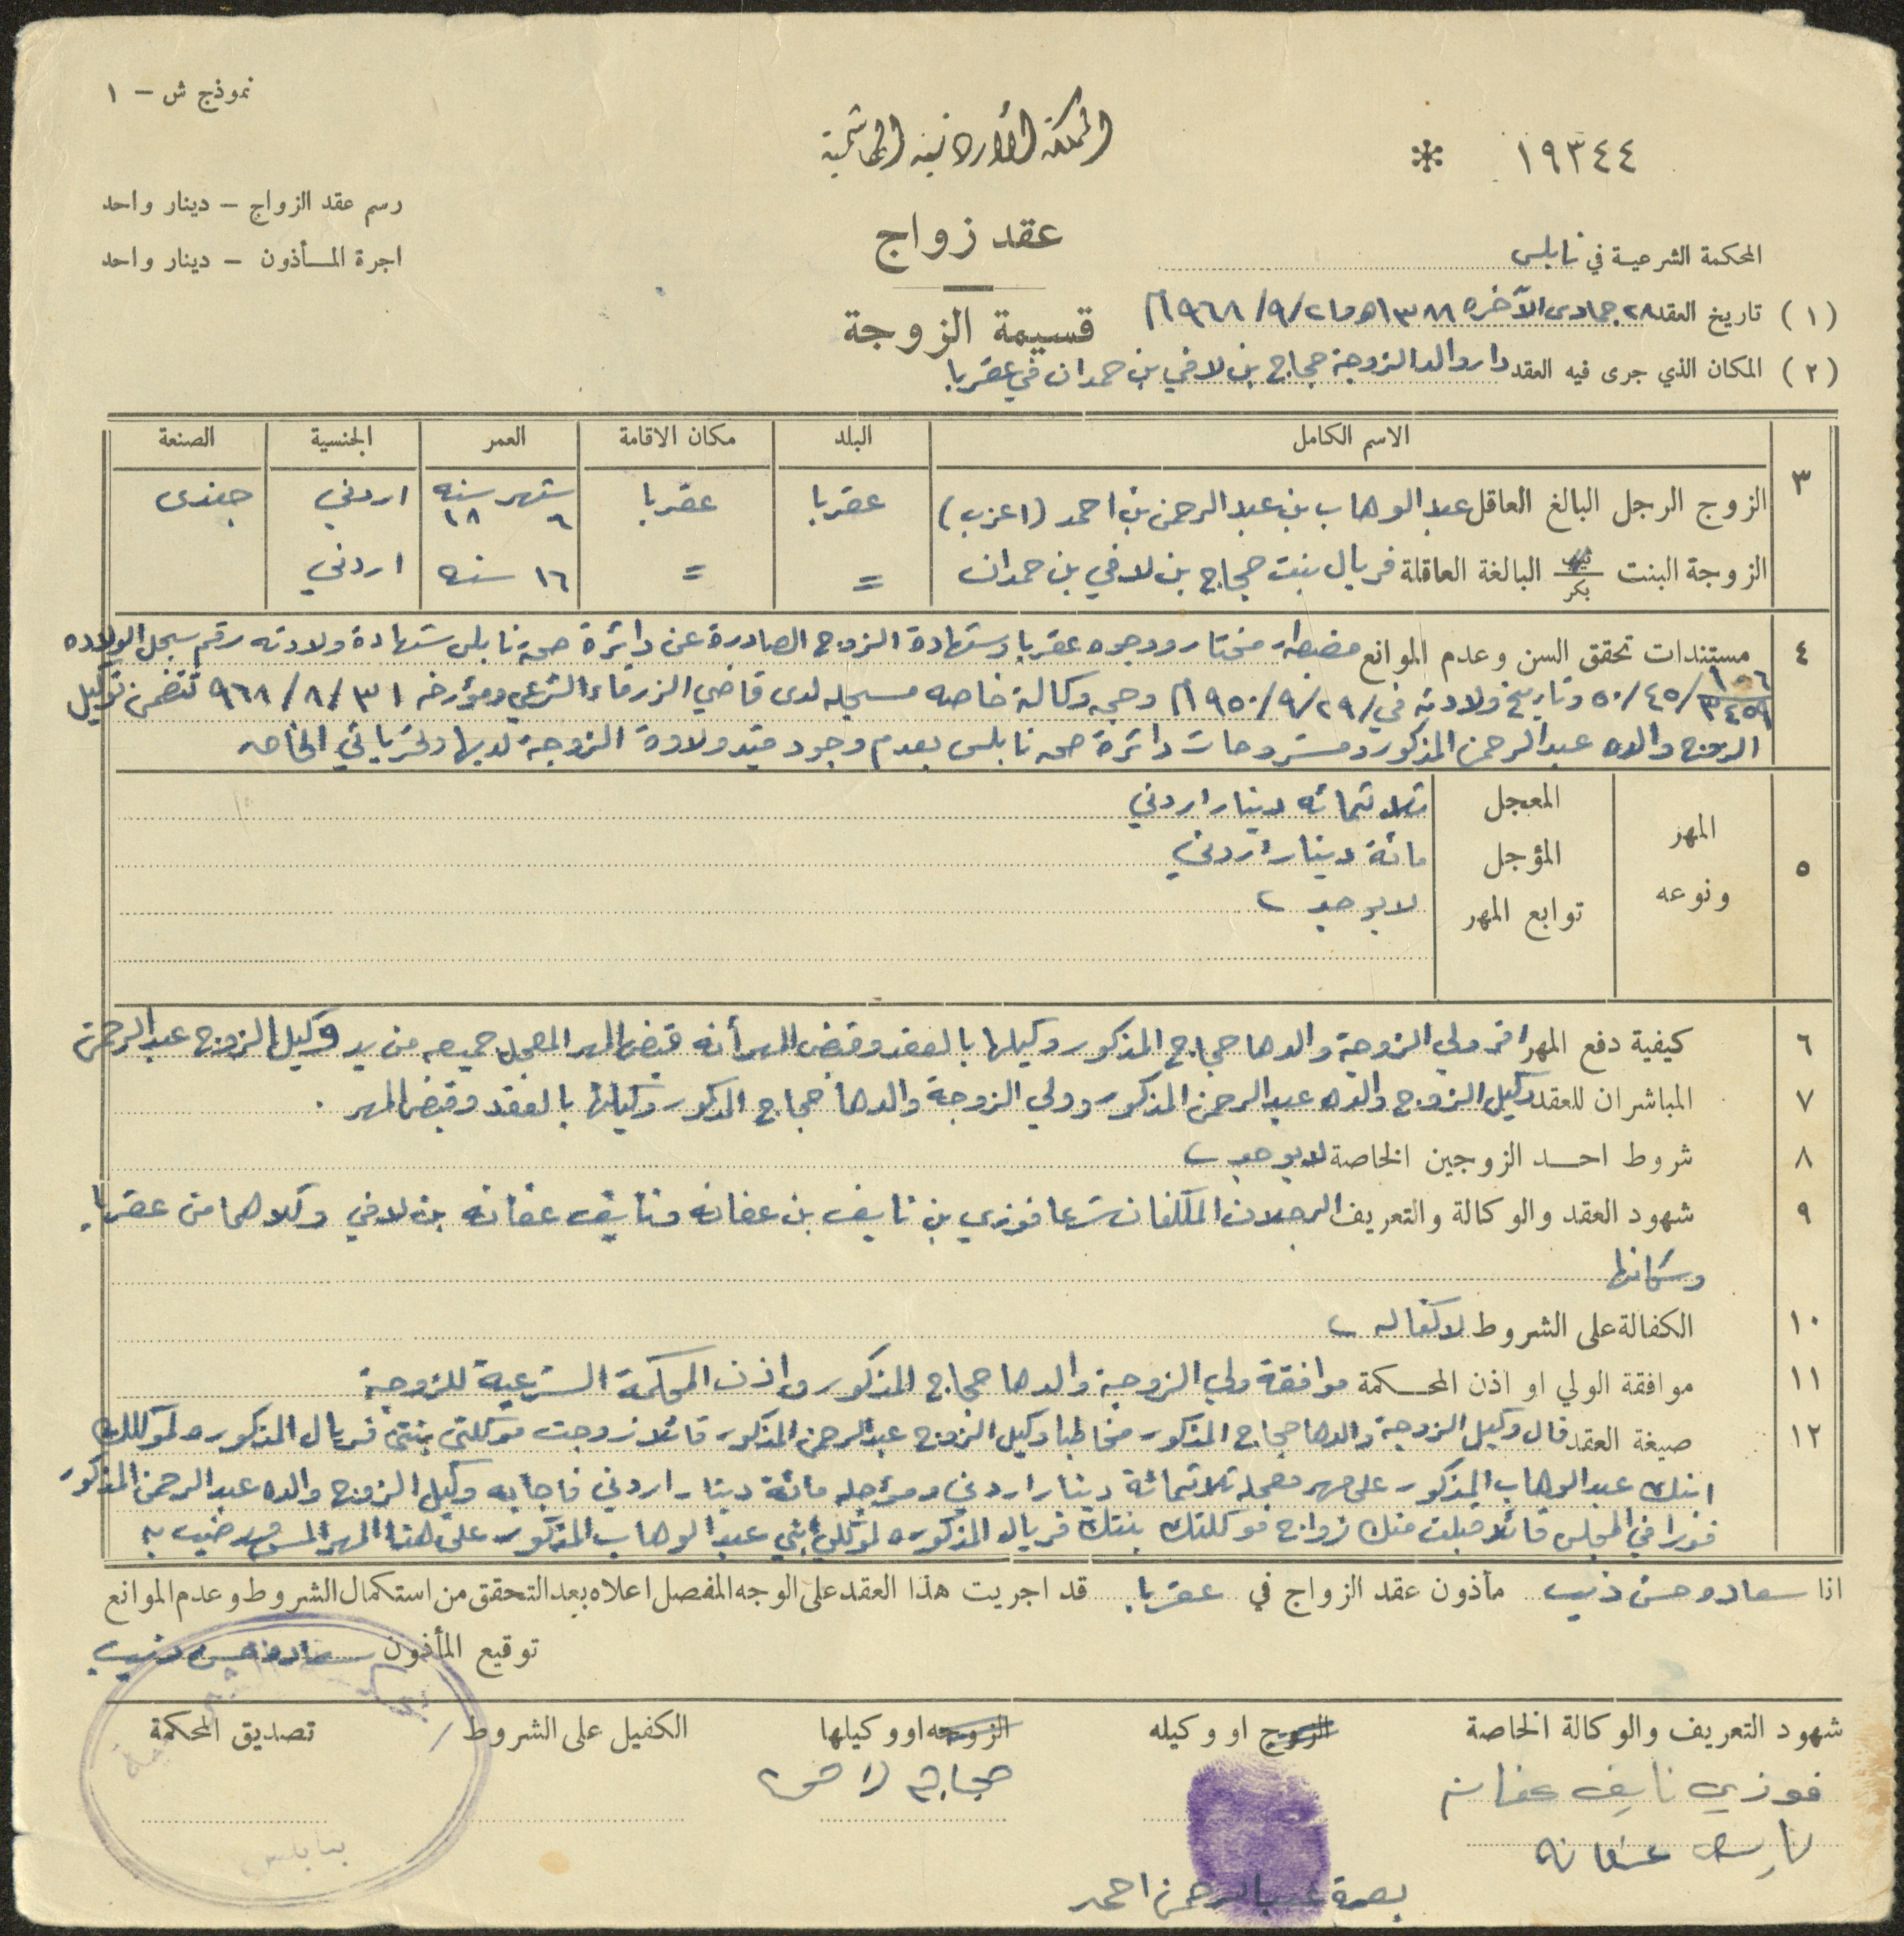 نموذج ش - ١
المملكة الأردنية الهاشمية
١٩٣٤٤ *
رسم عقد الزواج - دينار واحد
اجرة المأذون - دينار واحد
عقد زواج
قسيمة الزوجة
المحكمة الشرعية في نابلس
(١) تاريخ العقد ٢٨ جمادى الآخره ١٣٨٨هـ و٢١/٩/٩٦٨م
(٢) المكان الذي جرى فيه العقد دار والد الزوجة حجاج بن لافي بن حمدان في عقربا
٣ الاسم الكامل البلد مكان الاقامة العمر الجنسية الصنعة
الزوج الرجل البالغ العاقل عبد الوهاب بن عبد الرحمن بن احمد (اعزب) عقربا عقربا ٦ شهر ١٨ سنه اردني جندي
الزوجة البنت بكر البالغة العاقلة فريال بنت حجاج بن لافي بن حمدان = = ١٦ سنه اردني
٤ مستندات تحقق السن وعدم الموانع مضبطة مختار ووجوه عقربا وشهادة الزوج الصادرة عن دائرة صحة نابلس شهادة ولادته رقم سجل الولاده
٥٠/٤٥/ وتاريخ ولادته في ٢٩/٩/٩٥٠م وحجه وكالة خاصه مسجله لدى قاضي الزرقاء الشرعي ومؤرخه ٣١/٨/٩٦٨ تتضمن توكيل
الزوج والده عبد الرحمن المذكور ومشروحات دائرة صحه نابلس بعدم وجود قيد ولادة الزوجة لديها
٥ المهر ونوعه
المعجل ثلاثمائه دينار اردني
المؤجل مائة دينار اردني
توابع المهر لا يوجد
٦ كيفية دفع المهر اقر ولي الزوجة والدها حجاج المذكور وكيلها بالعقد وقبض المهر أنه قبض المهر المعجل جميعه من يد وكيل الزوج عبد الرحمن
٧ المباشران للعقد وكيل الزوج والده عبد الرحمن المذكور وولي الزوجة والدها حجاج المذكور وكيلها بالعقد وقبض المهر .
٨ شروط احد الزوجين الخاصة لا يوجد
٩ شهود العقد والوكالة والتعريف الرجلان المكلفان شرعا فوزي بن نايف بن عفانه ونايف عفانه بن لافي وكلاهما من عقربا
وسكانها
١٠ الكفالة على الشروط لا كفاله
١١ موافقة الولي او اذن المحكمة موافقة ولي الزوجة والدها حجاج المذكور واذن المحكمة الشرعية للزوجة
١٢ صيغة العقد قال وكيل الزوجة والدها حجاج المذكور مخاطبا وكيل الزوج عبد الرحمن المذكور قائلا زوجت موكلتي بنتي فريال المذكوره لموكلك
ابنك عبد الوهاب المذكور على مهر معجله ثلاثمائة دينار اردني ومؤجله مائة دينار اردني فاجابه وكيل الزوج والده عبد الرحمن المذكور
فورا في المجلس قائلا قبلت منك زواج موكلتك بنتك فريال المذكوره لموكلي ابني عبد الوهاب المذكور على هذا المهر المسمى ورضيت به
انا سعاده حسن ذيب مأذون عقد الزواج في عقربا قد اجريت هذا العقد على الوجه المفصل اعلاه بعد التحقق من استكمال الشروط وعدم الموانع
توقيع المأذون سعاده حسن ذيب
شهود التعريف والوكالة الخاصة الزوج او وكيله الزوجه او وكيلها الكفيل على الشروط تصديق المحكمة
فوزي نايف عفانه
حجاج لافي
نايف عفانه
بصمة عبد الرحمن احمد
بنابلس